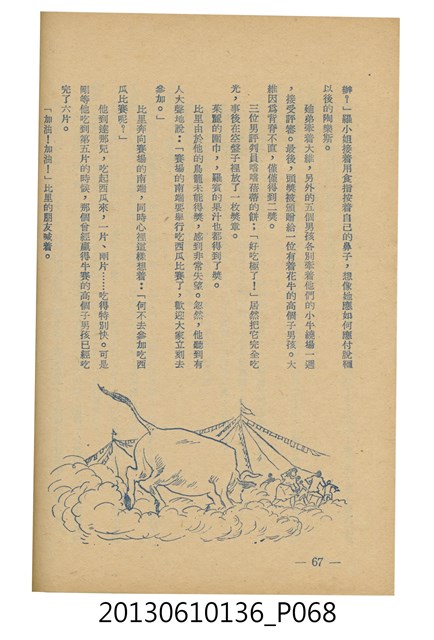 辦？」羅小姐接着用食指按着自己的鼻子，想像她應如何應付說種
以後的陶樂斯。
迪弟牽着大維，另外的五個男孩各別牽着他們的小牛繞場一週
，接受評審。最後，頭獎被頒給一位有着花牛的高個子男孩。大
維因爲背脊不直，僅僅得到二獎。
三位男評判員嚐嚐蓓蒂的餅：「好吃極了！」居然把它完全吃
光，事後在空盤子裡放了一枚獎章。
萊麗的圍巾，羅賓的果汁也都得到了獎。
比里由於他的烏龍未能得獎，感到非常失望。忽然，他聽到有
人大聲地說：「賽場的南端要舉行吃西瓜比賽了，歡迎大家立刻去
參加。」
比里奔向賽場的南端，同時心裡這樣想着：「何不去參加吃西
瓜比賽呢？」
他到達那兒，吃起西瓜來，一片、兩片……吃得特別快。可是
剛等他吃到第五片的時候，那個曾經贏得牛賽的高個子男孩已經吃
完了六片。
「加油！加油！」比里的朋友喊着。
— 67 —
20130610136_P068